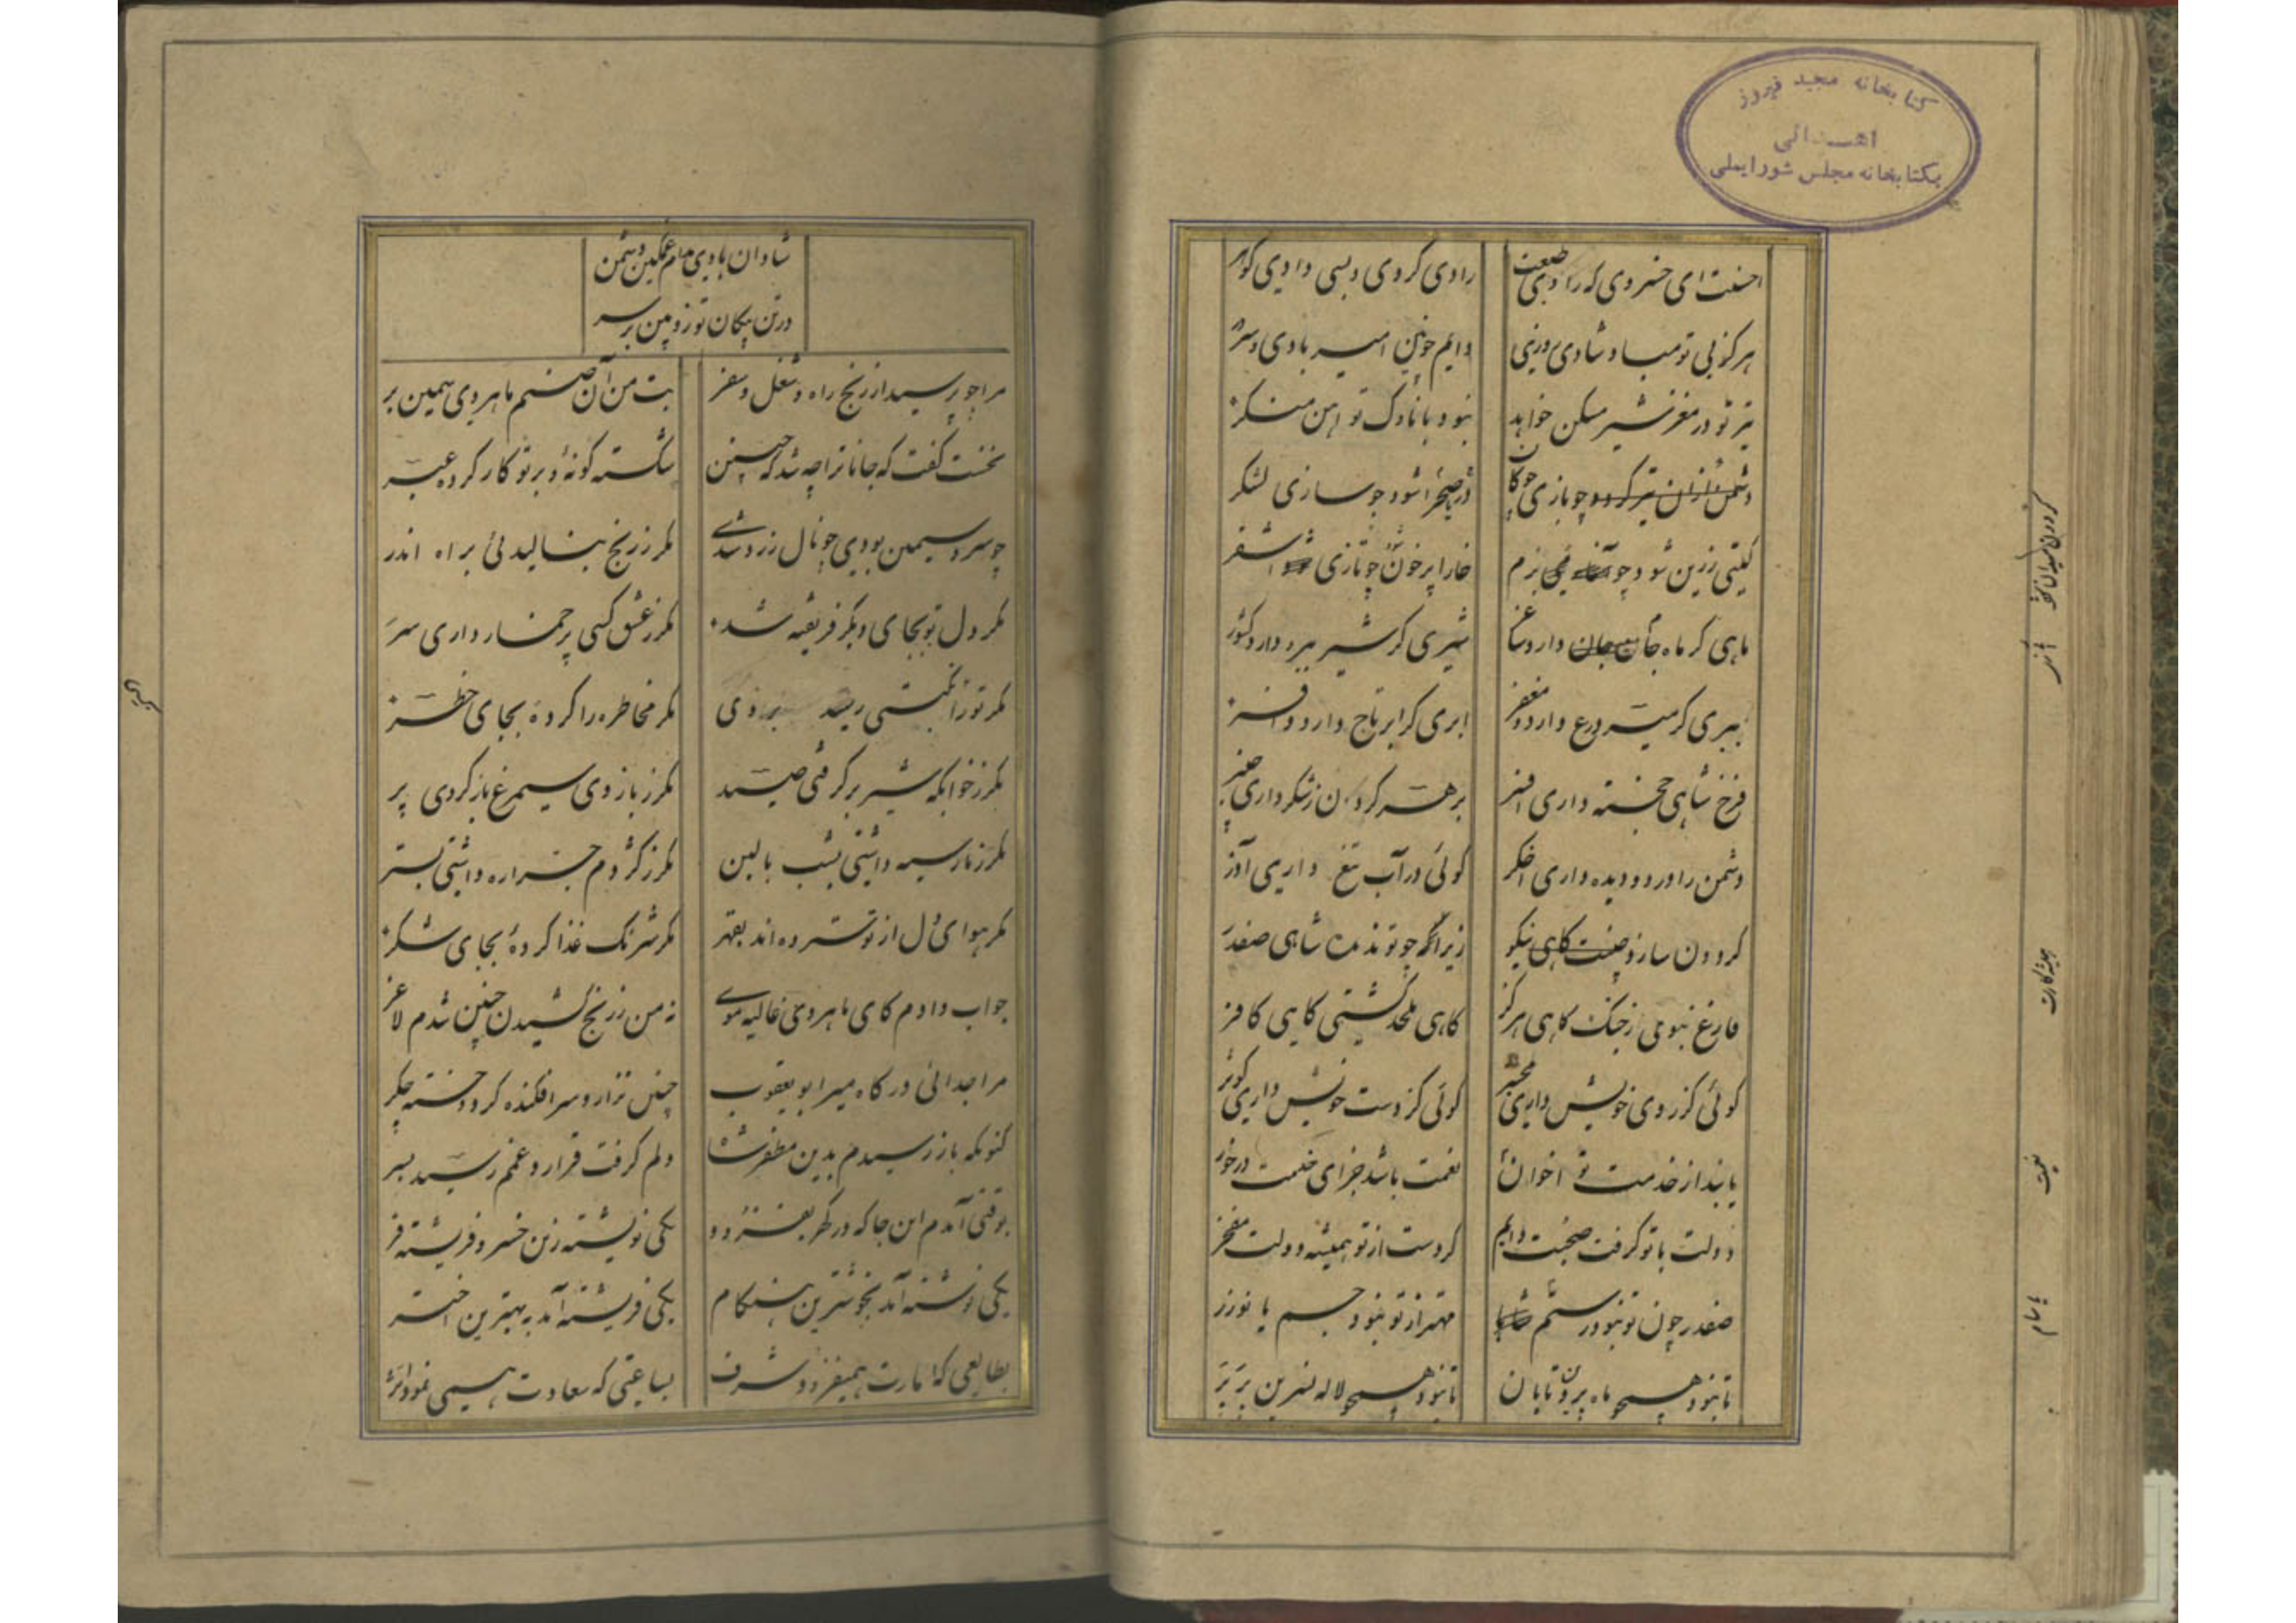 کتابخانه مجید فیروز
اهدائی
بکتابخانه مجلس شورایملی
احسنت ای خسروی که رادی صنعت رادی کردی و بسی دادی گوهر
هرگز بی تو مباد شادی روزی دایم چونین امیر بادی و سرور
تیر تو در مغز شیر مسکن خواهد نبود با ناوک تو آهن منکر
چو بازی چوگان صحرا شود چو سازی لشکر
گیتی زرین شود چو بزم خارا پر خون شود چو تازی اشقر
ماهی گر ماه جام دارد ساغر شیری گر شیر ببر دارد کشور
ببری گر ببر درع دارد و مغفر ابری گر ابر تاج دارد و افسر
فرخ شاهی خجسته داری افسر بر هر گردن ز شکر داری چنبر
دشمن را در دو دیده داری اخگر گوئی در آب تیغ داری آذر
گردون سازد صفت گاهی نیکو زیرا که چو تو ندید شاهی صفدر
فارغ نبوی ز جنگ گاهی هرگز گاهی ملحد کشتی گاهی کافر
گوئی کز روی خویش داری محشر گوئی کز دست خویش داری کوثر
یابند از خدمت تو اخوان نعمت باشد جزای خدمت درخور
دولت با تو گرفت صحبت دایم کردست از تو همیشه دولت مفخر
صفدر چون تو نبود رستم مهتر از تو نبود جسم یا نوذر
تا نبود هیچ ماه پروین تابان تا نبود هیچ لاله نسرین بر بر
شادان بادی مدام غمگین دشمن
در تن پیکان تو زوبین بر سر
مرا چو پرسید از رنج راه و شغل سفر بت من آن صنم ماهروی سیمین بر
نخست گفت که جانا ترا چه شد که چنین شکسته گونه و بر تو کار کرده عبر
چو سرو سیمین بودی چو نال زرد شدی مگر ز رنج بنالیدئی براه اندر
مگر دل تو بجای دگر فریفته شد مگر ز عشق کسی پر خمار داری سر
مگر ترا نکبتی رسید بزودی مگر مخاطره را کرده بجای خطر
مگر ز خوابگه شیر برگرفتی صید مگر ز بازوی سیمرغ باز کردی پر
مگر ز مار سیه داشتی بشب بالین مگر ز کژدم جراره داشتی بستر
مگر هوای دل از تو ستروده اند بقهر مگر شرنگ غذا کرده بجای شکر
جواب دادم کای ماهروی غالیه موی نه من ز رنج کشیدن چنین شدم لاغر
مرا جدائی درگاه میر ابو یعقوب چنین نزار و سرافکنده کرد و خسته جگر
کنونکه باز رسیدم بدین مظفر شاه دلم گرفت قرار و غمم رسید بسر
بوقتی آمدم این جا که در گهر بفزود یکی نوشته زین خسرو فریشته فر
یکی نوشته آمد بخوشترین هنگام یکی فریشته آمد به بهترین اختر
بطالعی که امارت همیفزود شرف بساعتی که سعادت همی نمود اثر